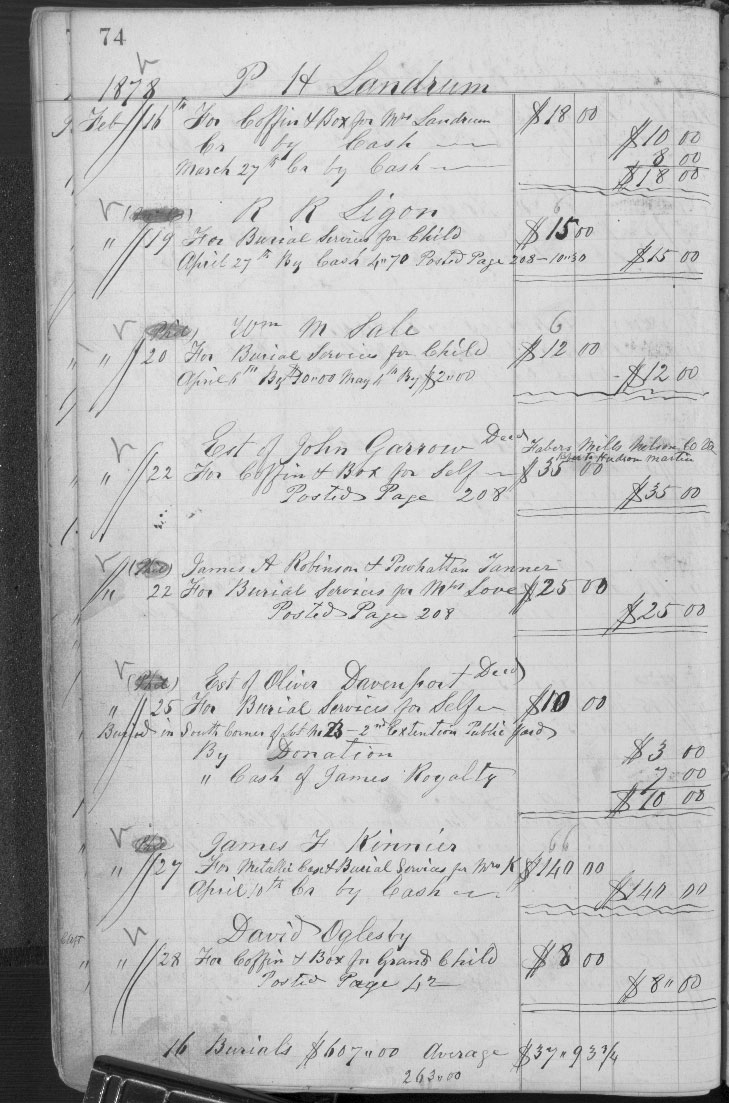 74
1878 P H Landrum
Feb 16th For Coffin & Box for Mrs Landrum $18 00
Cr by Cash $10 00
March 27th Cr by Cash 8 00
$18 00
R R Ligon 6
" 19 For Burial Services for Child $15 00
April 27th By Cash 4"70 Posted Page 208 - 10"30 $15 00
Wm M Sale 6
" 20 For Burial Services for Child $12 00
April 6th By $10"00 May 4th By $2"00 $12 00
Est of John Garrow Decd Fabers Mills Nelson Co Va
Hudson Martin
" 22 For Coffin & Box for Self $35 00
Posted Page 208 $35 00
James A Robinson & Powhattan Tanner
" 22 For Burial Services for Mrs Love $25 00
Posted Page 208 $25 00
Est of Oliver Davenport Decd
" 25 For Burial Services for Self $10 00
Buried in South Corner of Lot No - 2nd Extention Public Yard
By Donation $3 00
" Cash of James Royalty 7 00
$10 00
James F Kinnier 66
" 27 For Metallic Case & Burial Services for Mrs K $140 00
April 10th Cr by Cash $140 00
David Oglesby
" 28 For Coffin & Box for Grand Child $8 00
Posted Page 42 $8"00
16 Burials $607"00 Average $37"93 3/4
263"00